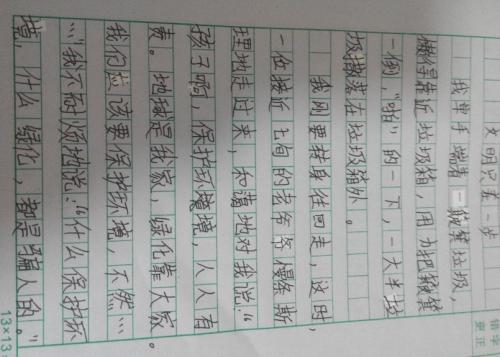 文明只差一步
我单手端着一簸箕垃圾，
懒得靠近垃圾箱，用力把簸箕
一倒，“啪”的一下，一大半垃
圾撒落在垃圾箱外。
我刚要转身往回走，这时，
一位接近七旬的老爷爷慢条斯
理地走过来，和蔼地对我说：“
孩子啊，保护环境，人人有
责。地球是我家，绿化靠大家。
我们应该要保护环境，不然……
…”我不耐烦地说：“什么保护环
境，什么绿化，都是骗人的。”
错字
更正
13×13=